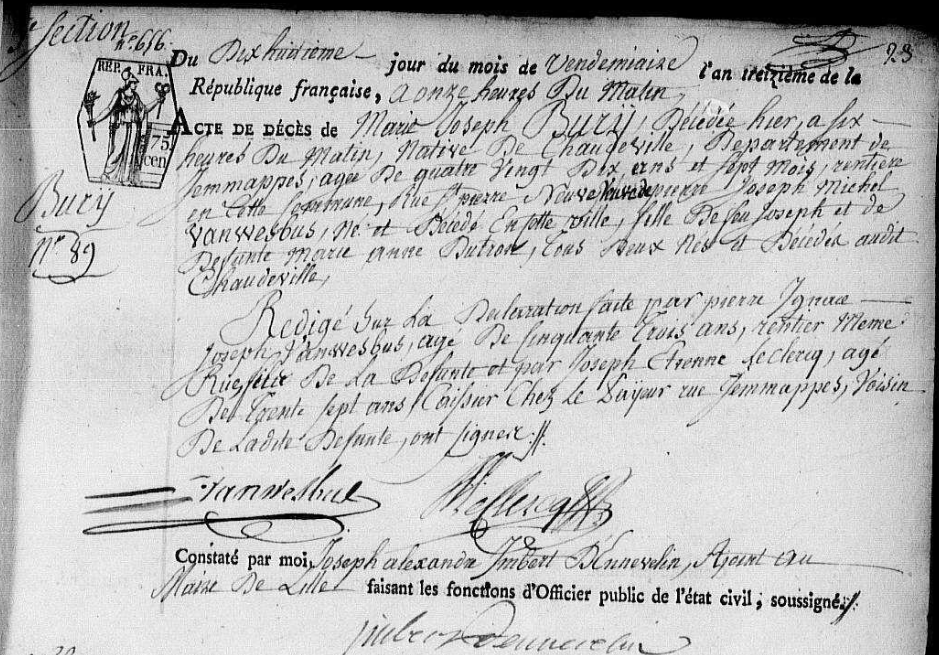 Section
n° 656.
23
REP. FRA.
75
cen.
Du Dix huitieme jour du mois de Vendemiaire l'an treizième de la
République française, a onze heures Du Matin,
ACTE DE DÉCÈS de Marie Joseph Bury, Décédée hier, a six
heures Du Matin, Native De Chaudeville, Departement de
Jemmappes, agée De quatre Vingt Dix ans et sept Mois, rentiere
en Cette Commune, Rue St pierre, Veuve de pierre Joseph Michel
Vanwesbus, Né et Décédé En cette Ville, fille De feu Joseph et de
Defunte Marie anne Dutron, tous Deux Nés et Décédés audit
Chaudeville,
Bury
Nr. 89
Redigé Sur La Declaration faite par pierre Ignace
Joseph Vanwesbus, agé De Cinquante Trois ans, rentier Meme
Rue, fils De La Defunte et par Joseph Etienne Leclercq, agé
De Trente sept ans, Caissier Chez Le Payeur rue Jemmappes, Voisin
De Ladite Defunte, ont signer :
Vanwesbus
Constaté par moi, Joseph alexandre Imbert Dennevelin, Ajoint au
Maire De Lille faisant les fonctions d'Officier public de l'état civil, soussigné.